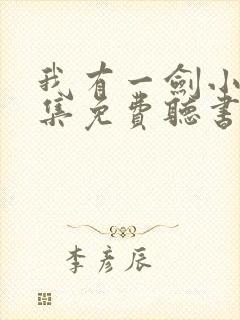 我有一劍小
集免費聽書
李彥辰